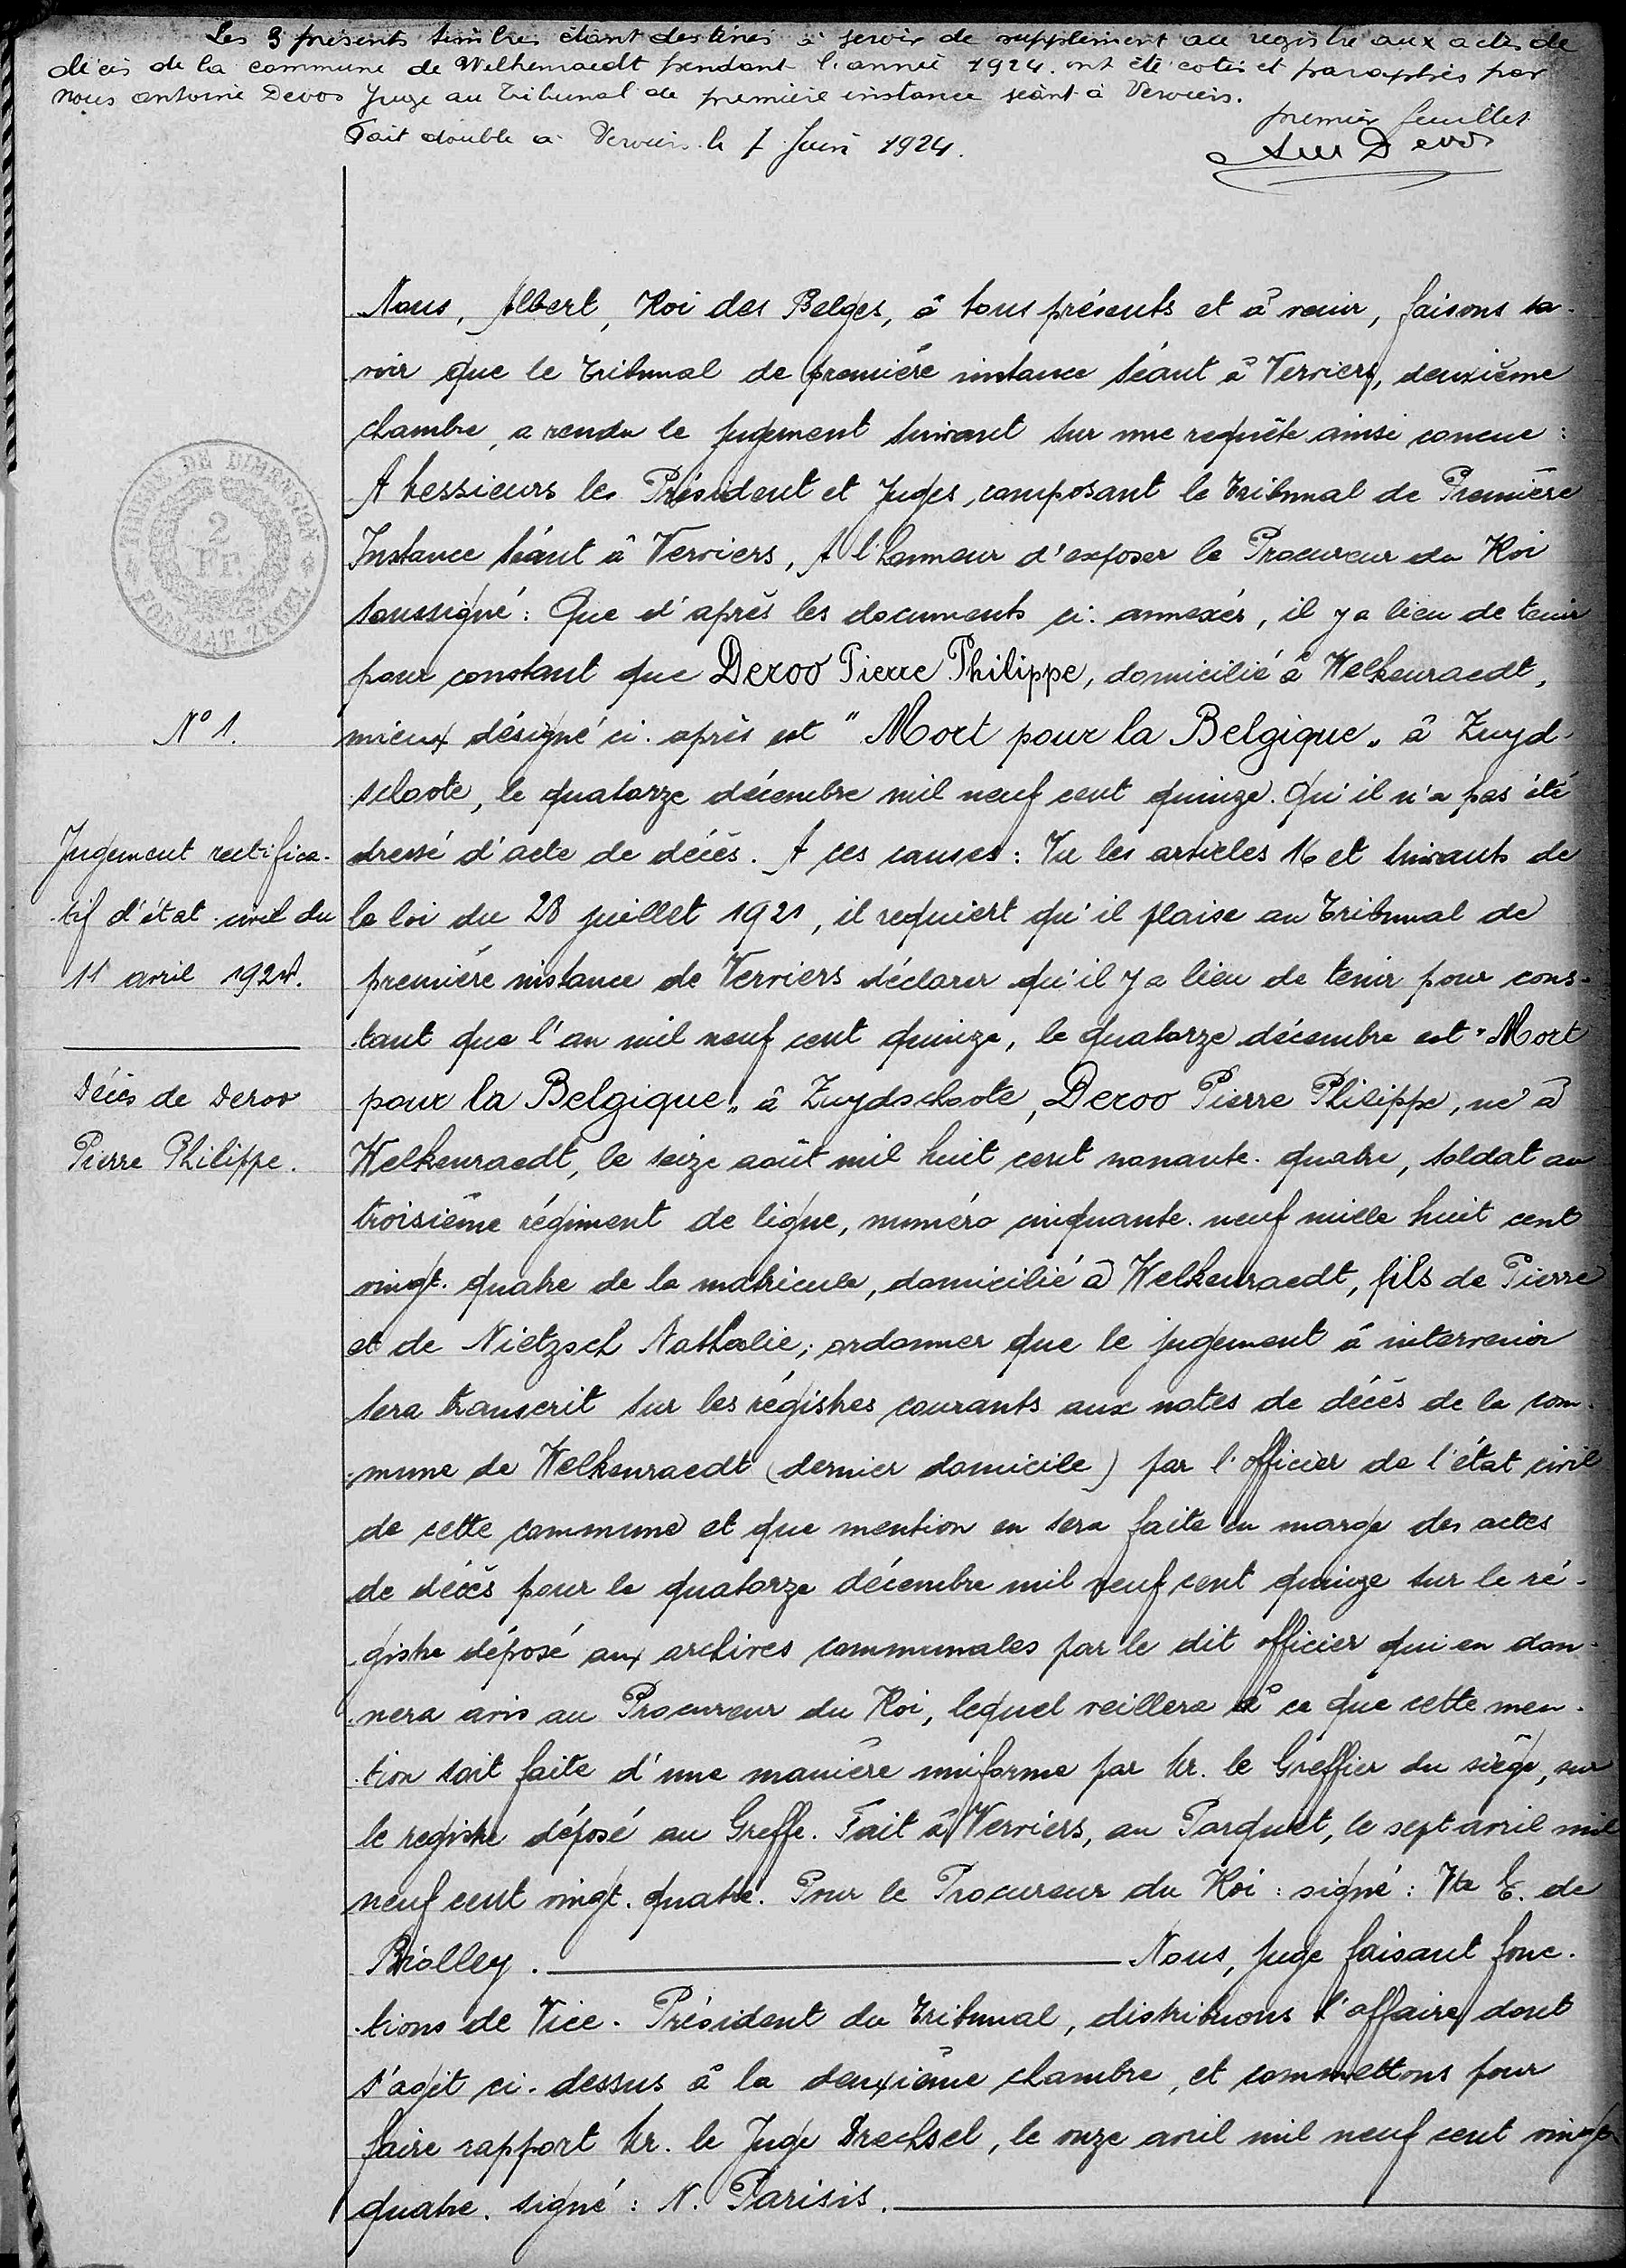 Les 3 présents timbres étant destinés à servir de supplément au registre aux actes de
décès de la commune de Welkenraedt pendant l'année 1924. ont été cotés et paraphés par
Nous Antoine Devos Juge au Tribunal de première instance séant à Verviers.
Fait double à Verviers le 7 Juin 1924.
premier feuillet
Ant Devos
TIMBRE DE DIMENSION
2
Fr.
FORMAAT ZEGEL
N° 1.
Jugement rectifica-
tif d'état civil du
11 avril 1924.
Décès de Deroo
Pierre Philippe.
Nous, Albert, Roi des Belges, à tous présents et à venir, faisons sa-
voir que le Tribunal de première instance séant à Verviers, deuxième
chambre, a rendu le jugement suivant sur une requête ainsi concue :
A Messieurs les Président et Juges composant le Tribunal de Première
Instance séant à Verviers, A l'honneur d'exposer le Procureur du Roi
soussigné : Que d'après les documents ci-annexés, il y a lieu de tenir
pour constant que Deroo Pierre Philippe, domicilié à Welkenraedt,
mieux désigné ci-après est "Mort pour la Belgique„ à Zuyd-
schoote, le quatorze décembre mil neuf cent quinze. Qu'il n'a pas été
dressé d'acte de décès. A ces causes : Vu les articles 16 et suivants de
la loi du 28 juillet 1921, il requiert qu'il plaise au Tribunal de
première instance de Verviers déclarer qu'il y a lieu de tenir pour cons-
tant que l'an mil neuf cent quinze, le quatorze décembre est "Mort
pour la Belgique„ à Zuydschoote, Deroo Pierre Philippe, né à
Welkenraedt, le seize août mil huit cent nonante-quatre, soldat au
troisième régiment de ligne, numéro cinquante-neuf mille huit cent
vingt-quatre de la matricule, domicilié à Welkenraedt, fils de Pierre
et de Nietzsch Nathalie; ordonner que le jugement à intervenir
sera transcrit sur les régistres courants aux notes de décès de la com-
mune de Welkenraedt (dernier domicile) par l'officier de l'état civil
de cette commune et que mention en sera faite en marge des actes
de décès pour le quatorze décembre mil neuf cent quinze sur le ré-
gistre déposé aux archives communales par le dit officier qui en don-
nera avis au Procureur du Roi, lequel veillera à ce que cette men-
tion soit faite d'une manière uniforme par Mr. le Greffier du siège, sur
le registre déposé au Greffe. Fait à Verviers, au Parquet, le sept avril mil
neuf cent vingt-quatre. Pour le Procureur du Roi : signé : Vte E. de
Biolley. Nous, Juge faisant fonc-
tions de Vice-Président du Tribunal, distribuons l'affaire dont
s'agit ci-dessus à la deuxième chambre, et commettons pour
faire rapport Mr. le Juge Drechsel, le onze avril mil neuf cent vingt-
quatre. signé : N. Parisis.